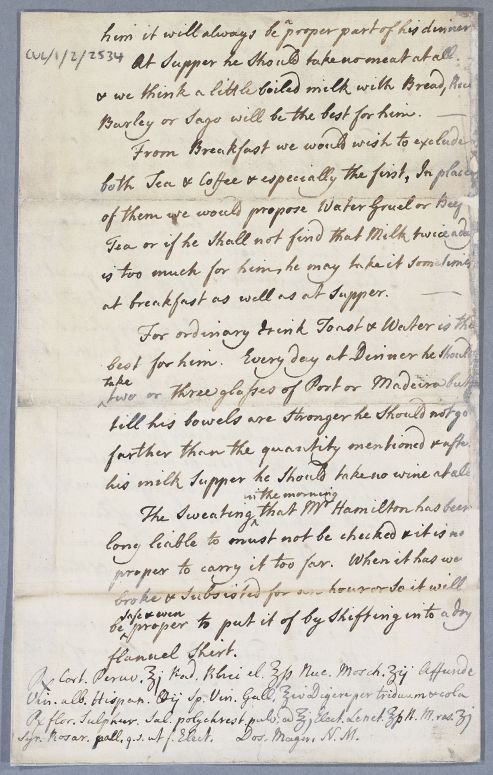 him it will always be a proper part of his dinner
CUL/1/2/2534
At Supper he Should take no meat at all
& we think a little boiled milk with Bread, Rice
Barley or Sago will be the best for him. —
From Breakfast we would wish to exclude
both Tea & Coffee & especially the first, In place
of them we would propose Water Gruel or Beef
Tea or if he Shall not find that Milk twice a day
is too much for him, he may take it sometimes
at breakfast as well as at Supper. —
For ordinary drink Toast & Water is the
best for him. Every day at Dinner he should
take
two or three glasses of Port or Madeira but
till his bowels are Stronger he Should not go
farther than the quantity mentioned & after
his milk Supper he Should take no wine at all
in the morning
The Sweating that Mr Hamilton has been
long liable to must not be checked & it is no
proper to carry it too far. When it has we
broke & Subsisted for an hour or So it will
safe & even
be proper to put it of by Shifting into a dry
flanuel Shert.
Rx Cort. Peruv. ℥j Rad. Rhei el. ℥ß Nuc. Mosch. ʒij Affunde
Vin. alb. Hispan. ij Sp. Vin. Gall. ℥iv Digere per triduum & cola
Rx flor. Sulphur. Sal. polychrest pulv. a ʒj Elect. Lenet. ℥ß N. M. ras ʒj
Syr. Rosar. pall. q.s. ut f. Elect. Dos. Magn. N. M.